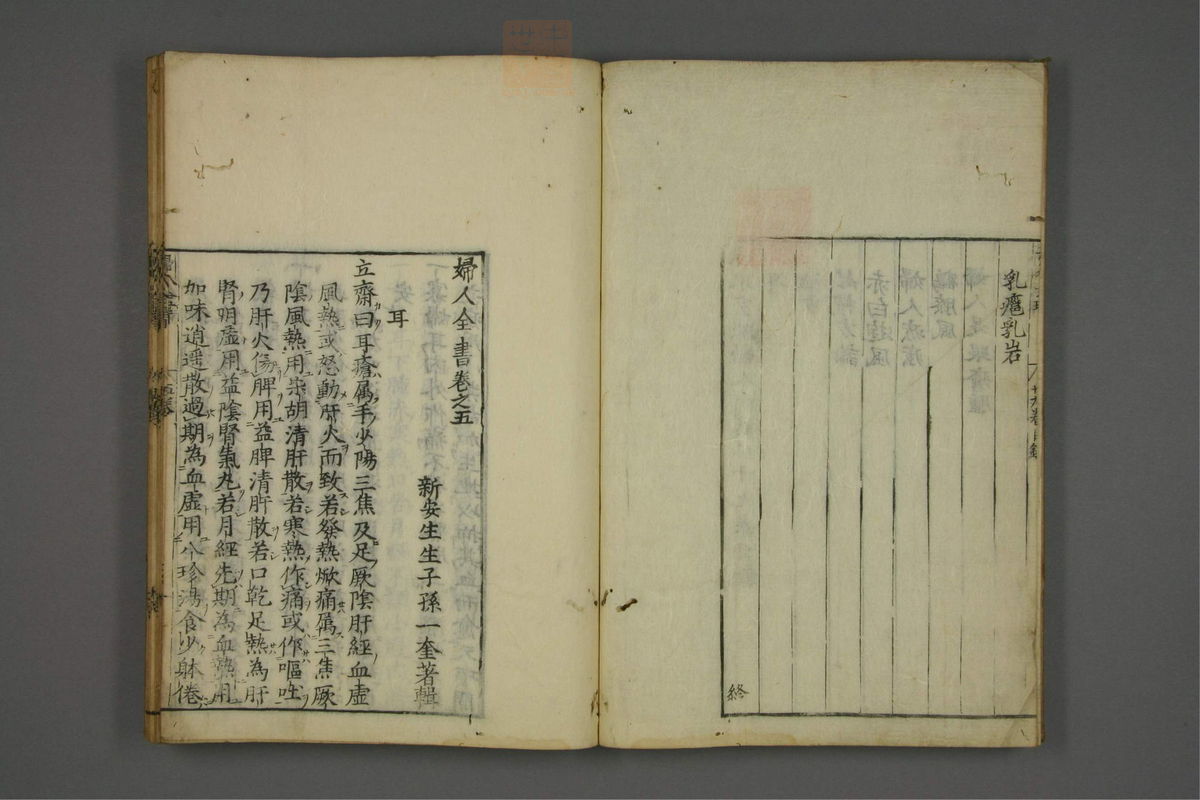 乳癰乳岩
終
婦人全書卷之五
新安生生子孫一奎著輯
耳
立齋曰耳瘡属手少陽三焦及足厥陰肝經血虛
風熱或怒動肝火而致若發熱焮痛属三焦厥
陰風熱用柴胡清肝散若寒熱作痛或作嘔吐
乃肝火傷脾用益脾清肝散若口乾足熱為肝
腎明虛用益陰腎氣丸若月經先期為血熱用
加味逍遥散過期為血虛用八珍湯食少躰倦